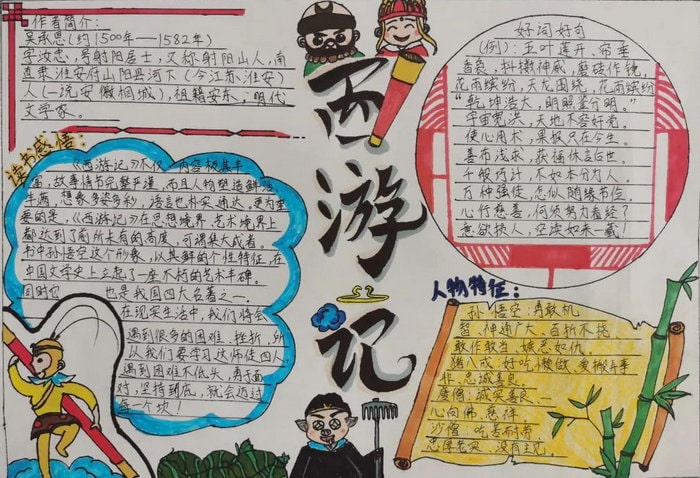 作者简介:
吴承恩(约1500年——1582年)
字汝忠,号射阳居士,又称射阳山人,南
直隶淮安府山阳县河下(今江苏淮安)
人(一说安徽桐城),祖籍安东,明代
文学家。
读书感悟:
《西游记》不仅 内容极其丰
富,故事情节完整严谨,而且人物塑造鲜活
丰满,想象多姿多彩,语言也朴实通达。更为重
要的是,《西游记》在思想境界,艺术境界上
都达到了前所未有的高度,可谓集大成者。
书中孙悟空这个形象,以其鲜的个性特征,在
中国文学史上立起了一座不朽的艺术丰碑。
同时它 也是我国四大名著之一。
在现实生活中,我们将会
遇到很多的困难、挫折,所
以我们要学习这师徒四人
遇到困难不低头,勇于面
对,坚持到底,就会迈过
每一个坎!
西游记
好词好句
(例):五叶莲开,帘垂
香袅,抖擞神威,磨砖作镜,
花雨缤纷,天龙围绕,花雨缤纷
“乾坤浩大,日月照鉴分明。”
宇宙宽洪,天地不容奸党。
使心用术,果报只在今生。
善布浅求,获福休言后世。
千般巧计,不如本分为人。
万种强徒,怎似随缘节俭。
心行慈善,何须努力看经?
意欲损人,空读如来一藏!
人物特征:
孙悟空:勇敢机
智、神通广大、百折不挠、
敢作敢当、嫉恶如仇。
猪八戒:好吃懒做、爱搬弄事
非、忠诚善良。
唐僧:诚实善良、一
心向佛、慈祥
沙僧:吃苦耐劳、
忠厚老实、没有主见。